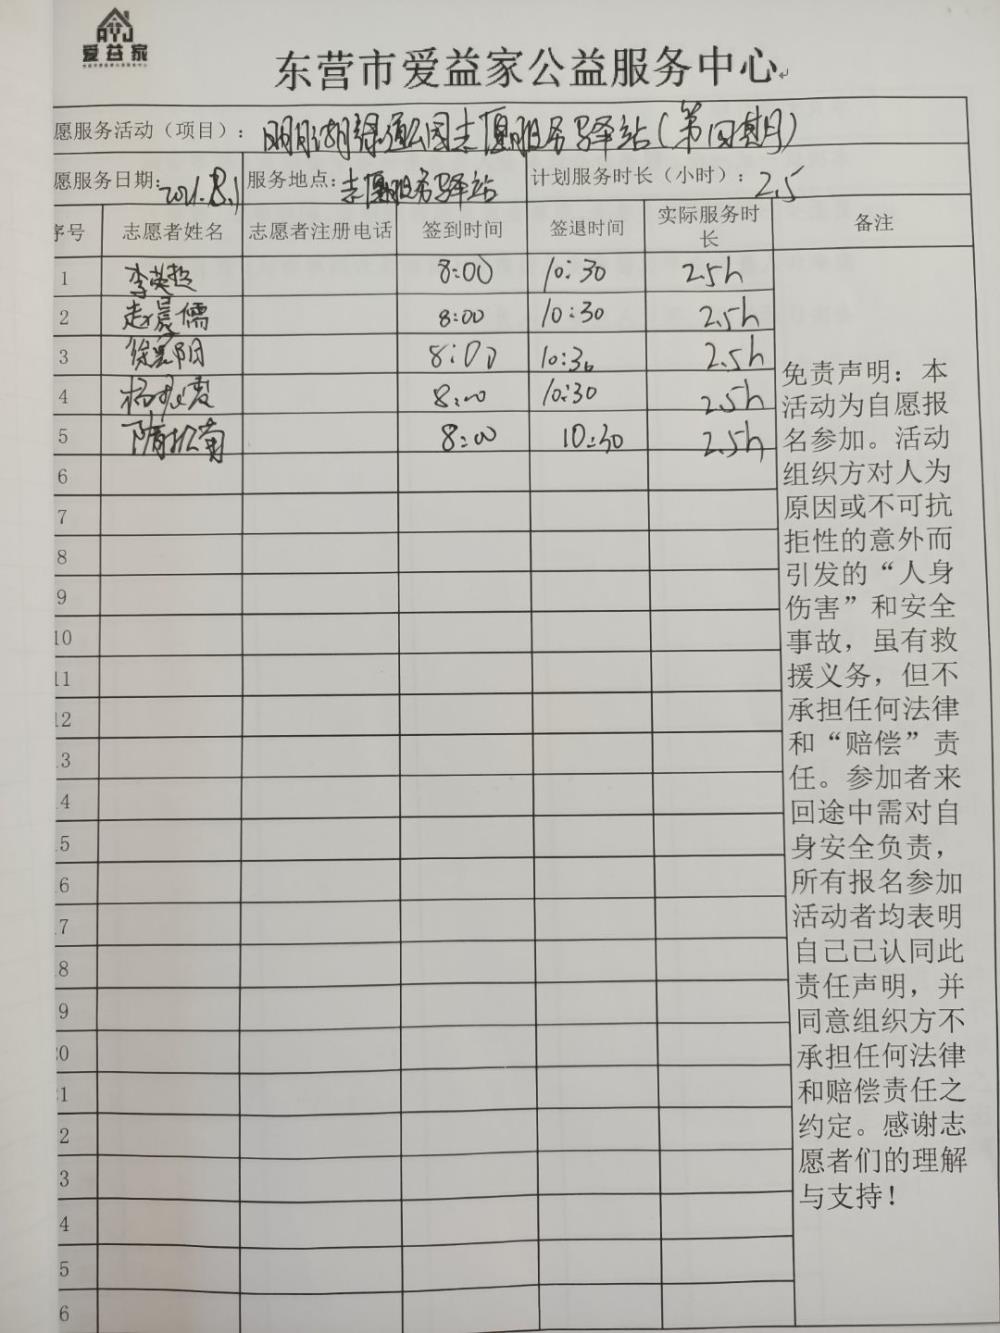 爱益家
东营市爱益家公益服务中心
愿服务活动（项目）： 明月湖绿道公园志愿服务驿站（第四期）
愿服务日期： 2021.8.1 服务地点： 志愿服务驿站 计划服务时长（小时）： 2.5
序号 志愿者姓名 志愿者注册电话 签到时间 签退时间 实际服务时长 备注
1 李英 8:00 10:30 2.5h
2 赵晨儒 8:00 10:30 2.5h
3 徐 阳 8:00 10:30 2.5h
4 杨 8:00 10:30 2.5h
5 隋松菊 8:00 10:30 2.5h
6
7
8
9
10
11
12
13
14
15
16
17
18
19
20
21
2
3
4
5
6
免责声明：本
活动为自愿报
名参加。活动
组织方对人为
原因或不可抗
拒性的意外而
引发的“人身
伤害”和安全
事故，虽有救
援义务，但不
承担任何法律
和“赔偿”责
任。参加者来
回途中需对自
身安全负责，
所有报名参加
活动者均表明
自己已认同此
责任声明，并
同意组织方不
承担任何法律
和赔偿责任之
约定。感谢志
愿者们的理解
与支持！